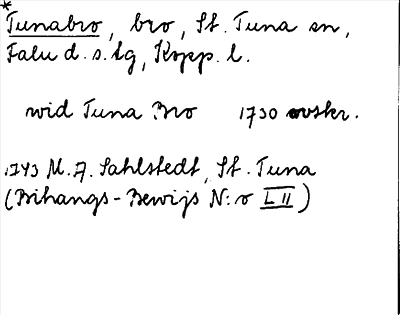 *
Tunabro, bro, St. Tuna sn,
Falu d. s. tg, Kopp. l.
wid Tuna Bro 1730 avskr.
1743 M. A. Sahlstedt, St. Tuna
(Bihangs-Bewijs N:o LII)